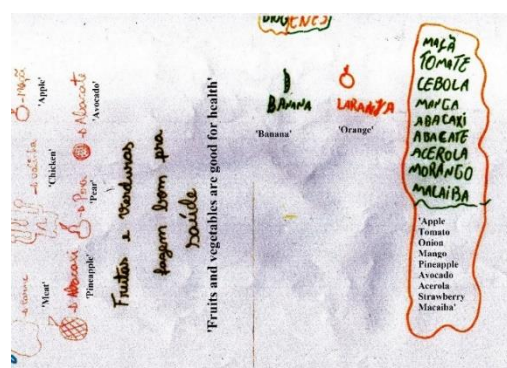 DIOGENES
Maçã
'Apple'
Abacate
'Avocado'
'Chicken'
Pera
'Pear'
carne
'Meat'
Abacaxi
'Pineapple'
Frutas e Verduras
fazem bom pra
saúde
'Fruits and vegetables are good for health'
BANANA
'Banana'
LARANJA
'Orange'
MAÇÃ
TOMATE
CEBOLA
MANGA
ABACAXI
ABACATE
ACEROLA
MORANGO
MALAIBA
'Apple
Tomato
Onion
Mango
Pineapple
Avocado
Acerola
Strawberry
Macaiba'